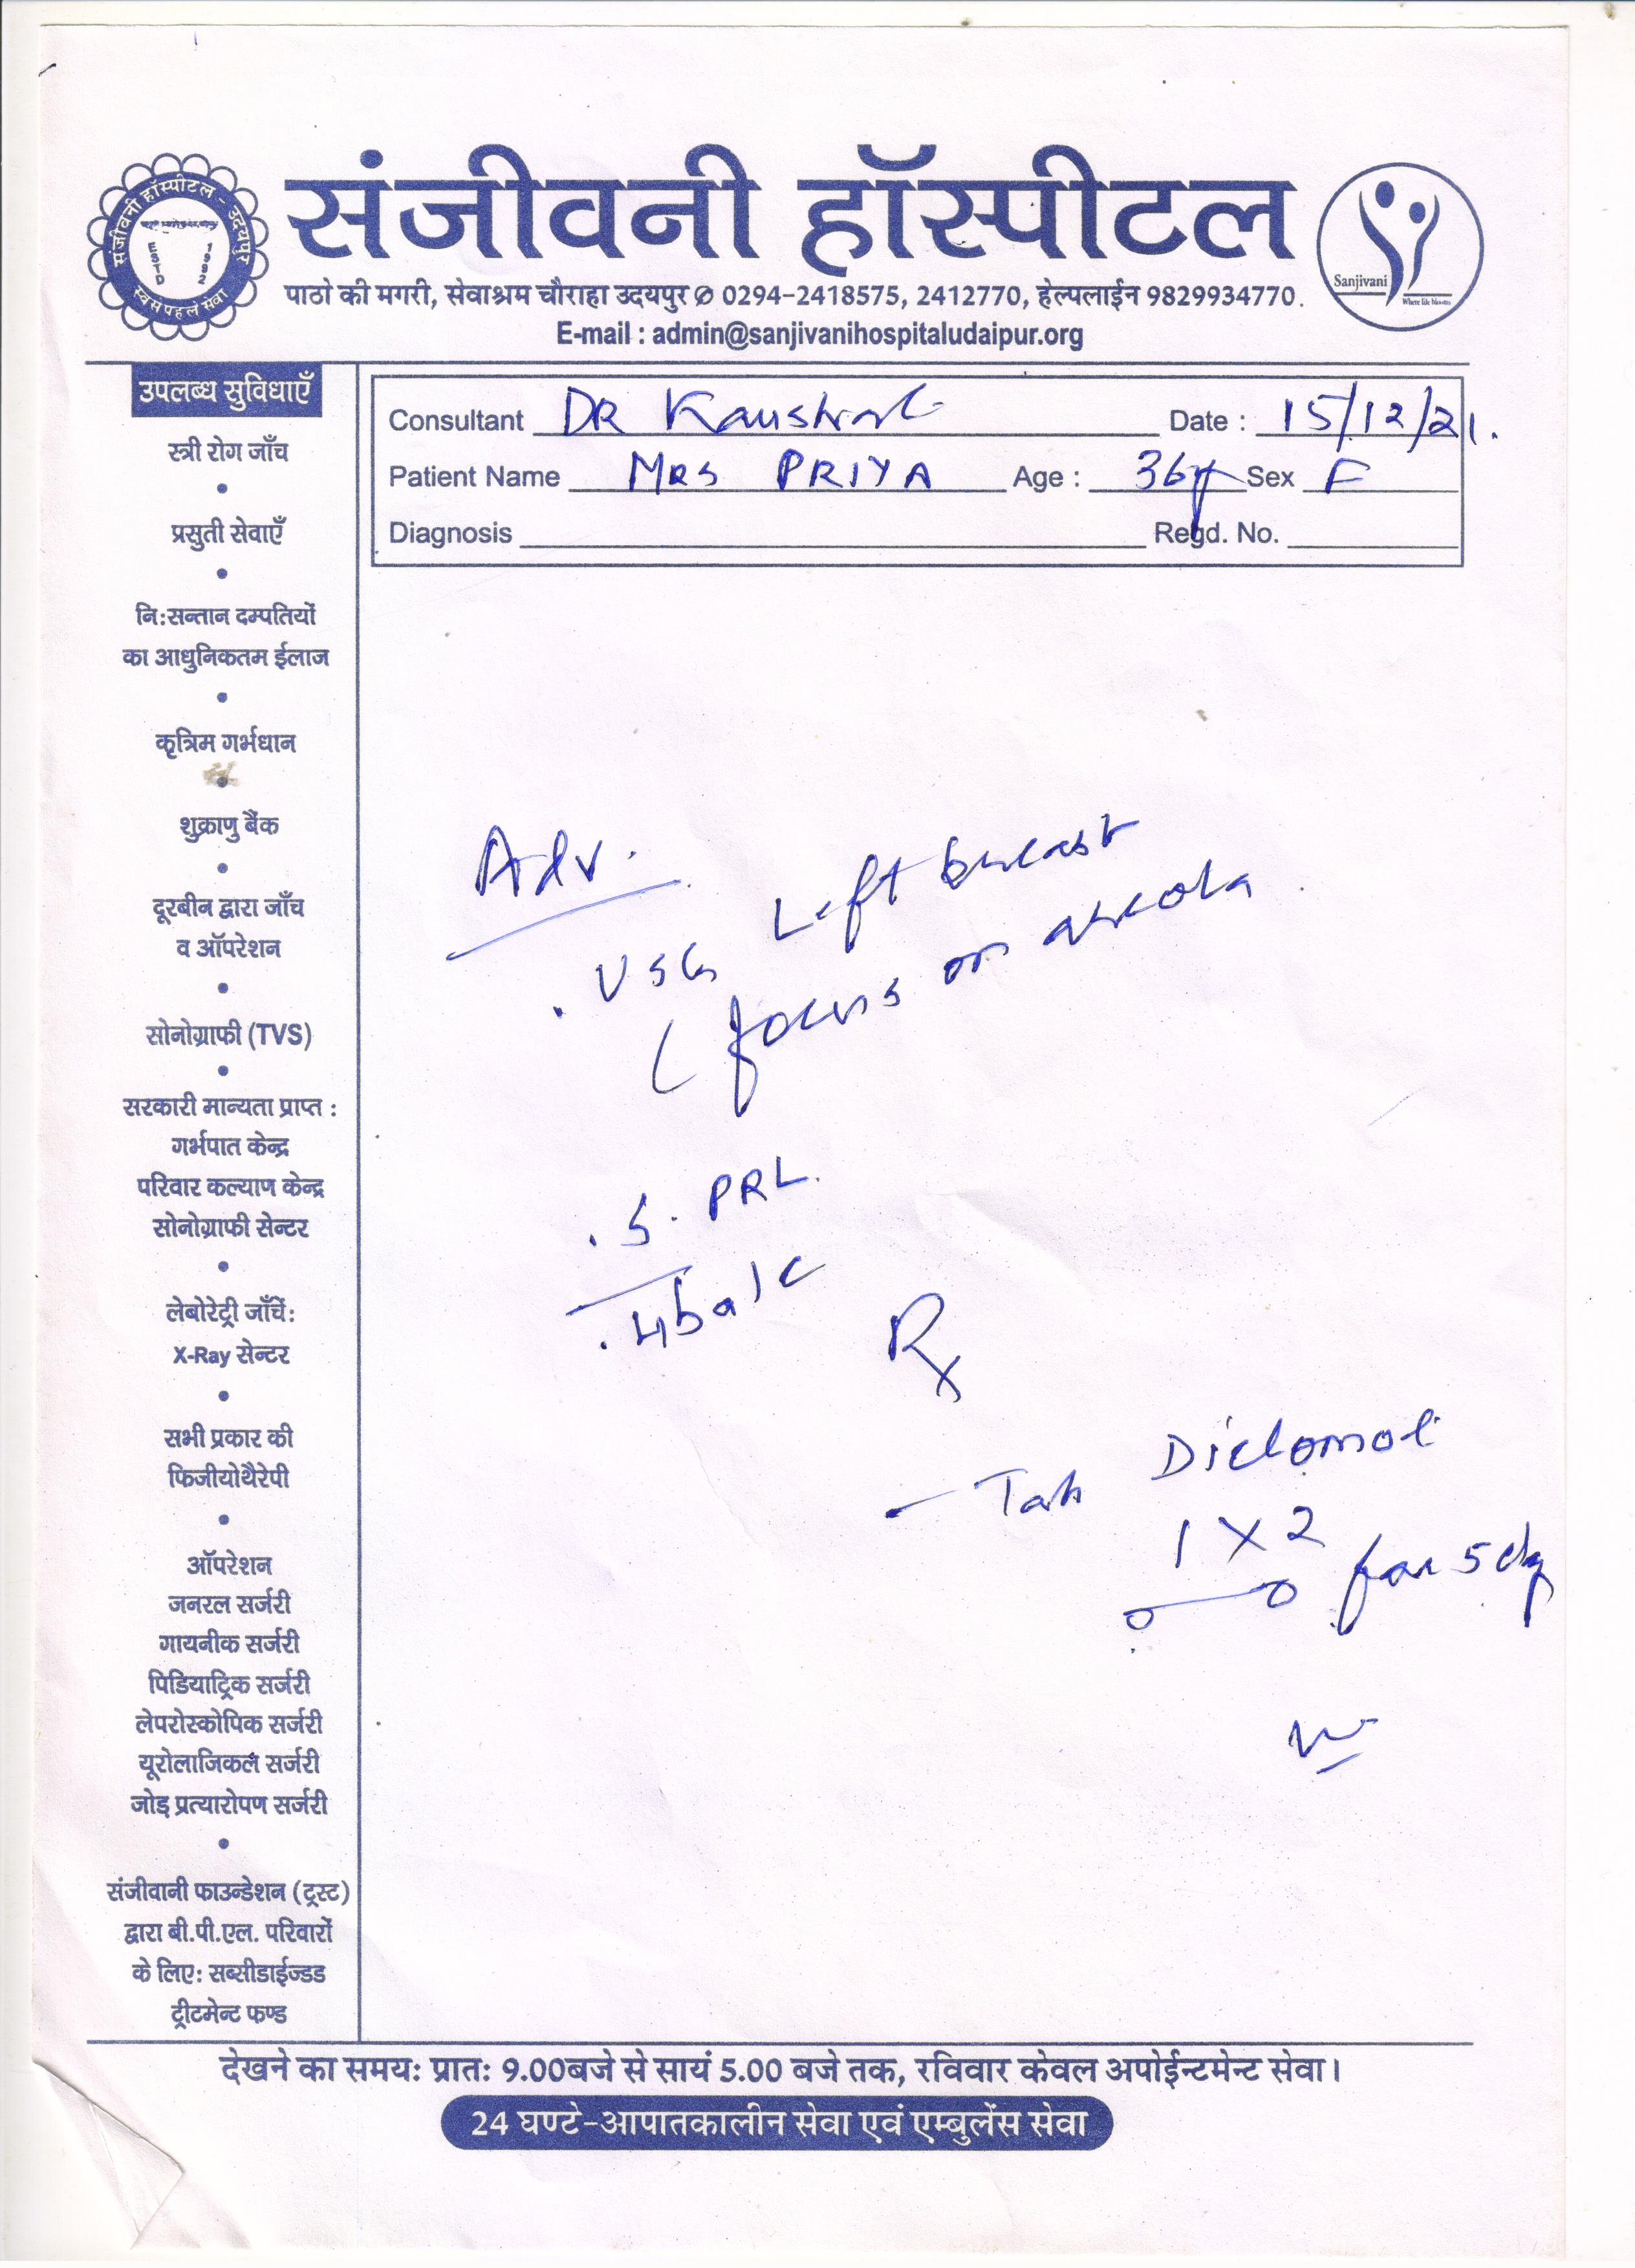 संजीवनी हॉस्पीटल - उदयपुर
ESTD 1992
स्व से पहले सेवा
संजीवनी हॉस्पीटल
Sanjivani
Where life blooms
पाठो की मगरी, सेवाश्रम चौराहा उदयपुर ✆ 0294-2418575, 2412770, हेल्पलाईन 9829934770.
E-mail : admin@sanjivanihospitaludaipur.org
Consultant DR Kaushal Date : 15/12/21.
Patient Name MRS PRIYA Age : 36y Sex F
Diagnosis Regd. No.
उपलब्ध सुविधाएँ
स्त्री रोग जाँच
प्रसुती सेवाएँ
नि:सन्तान दम्पतियों
का आधुनिकतम ईलाज
कृत्रिम गर्भधान
शुक्राणु बैंक
दूरबीन द्वारा जाँच
व ऑपरेशन
सोनोग्राफी (TVS)
सरकारी मान्यता प्राप्त :
गर्भपात केन्द्र
परिवार कल्याण केन्द्र
सोनोग्राफी सेन्टर
लेबोरेट्री जाँचें:
X-Ray सेन्टर
सभी प्रकार की
फिजीयोथैरेपी
ऑपरेशन
जनरल सर्जरी
गायनीक सर्जरी
पिडियाट्रिक सर्जरी
लेपरोस्कोपिक सर्जरी
यूरोलाजिकल सर्जरी
जोड़ प्रत्यारोपण सर्जरी
संजीवानी फाउन्डेशन (ट्रस्ट)
द्वारा बी.पी.एल. परिवारों
के लिए: सब्सीडाईज्डड
ट्रीटमेन्ट फण्ड
Adv.
. USG Left breast
( focus on areola
. S. PRL.
. Hba1c
Rx
- Tab Diclomol
1 X 2
for 5 dy
देखने का समय: प्रात: 9.00बजे से सायं 5.00 बजे तक, रविवार केवल अपोईन्टमेन्ट सेवा।
24 घण्टे-आपातकालीन सेवा एवं एम्बुलेंस सेवा